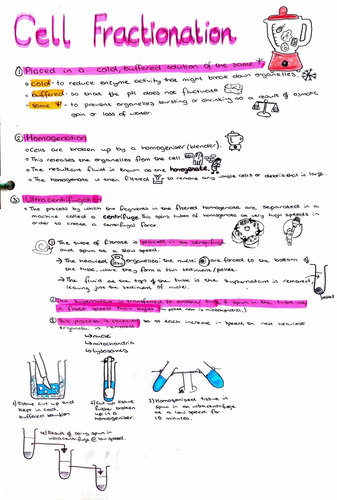 Cell Fractionation
① Placed in a cold, buffered solution of the same Ψ.
○ cold - to reduce enzyme activity that might break down organelles.
○ buffered - so that the pH does not fluctuate
○ same Ψ - to prevent organelles bursting or shrinking as a result of osmotic
gain or loss of water.
② Homogenation
○ Cells are broken up by a homogeniser (blender).
○ This releases the organelles from the cell
○ The resultant fluid is known as the homogenate.
○ The homogenate is then filtered to remove any whole cells or debris that is large.
③ Ultracentrifugation
○ The process by which the fragments in the filtered homogenate are separated in a
machine called a centrifuge. This spins tubes of homogenate at very high speeds in
order to create a centrifugal force.
① The tube of filtrate is placed in the centrifuge
and spun at a slow speed.
→ The heaviest organelles, the nuclei are forced to the bottom of
the tube, where they form a thin sediment/pellet.
→ The fluid at the top of the tube is the supernatant is removed,
leaving just the sediment of nuclei.
pellet
② The supernatant is transferred to another tube & spun in the tube at
a faster speed than before
③ This process is continued so at each increase in speed, the next heaviest
organelle is removed
↳ nuclei
↳ mitochondria
↳ lysosomes
1) Tissue cut up and
kept in cold,
buffered solution
2) Cut up tissue
further broken
up in a
homogeniser.
3) Homogenised tissue is
spun in an ultracentrifuge
at a low speed for
10 minutes.
4) Result of being spun in
ultracentrifuge @ low speed.